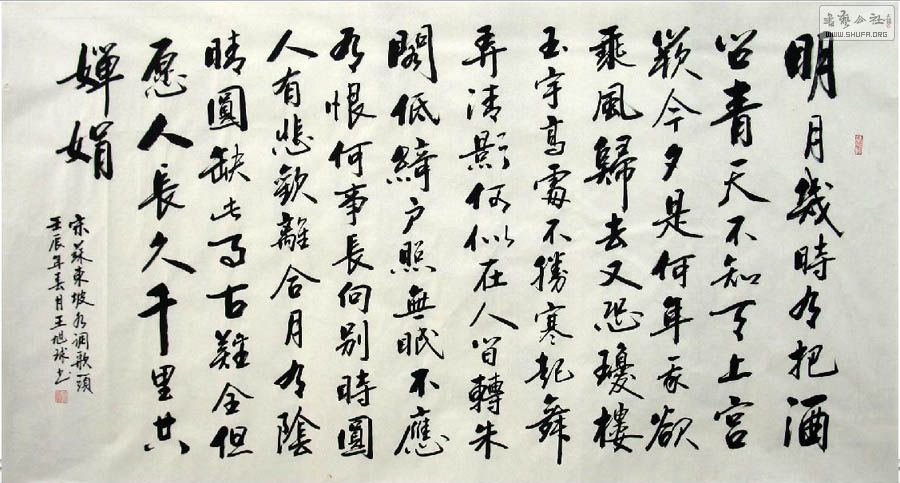 明月幾時有把酒
问青天不知天上宫
闕今夕是何年我欲
乘風歸去又恐瓊樓
玉宇高處不勝寒起舞
弄清影何似在人间轉朱
閣低綺户照無眠不應
有恨何事長向别時圓
人有悲歡離合月有陰
晴圓缺此事古難全但
愿人長久千里共
嬋娟
宋蘇東坡水调歌頭
壬辰年春月王旭球书
WWW.SHUFA.ORG